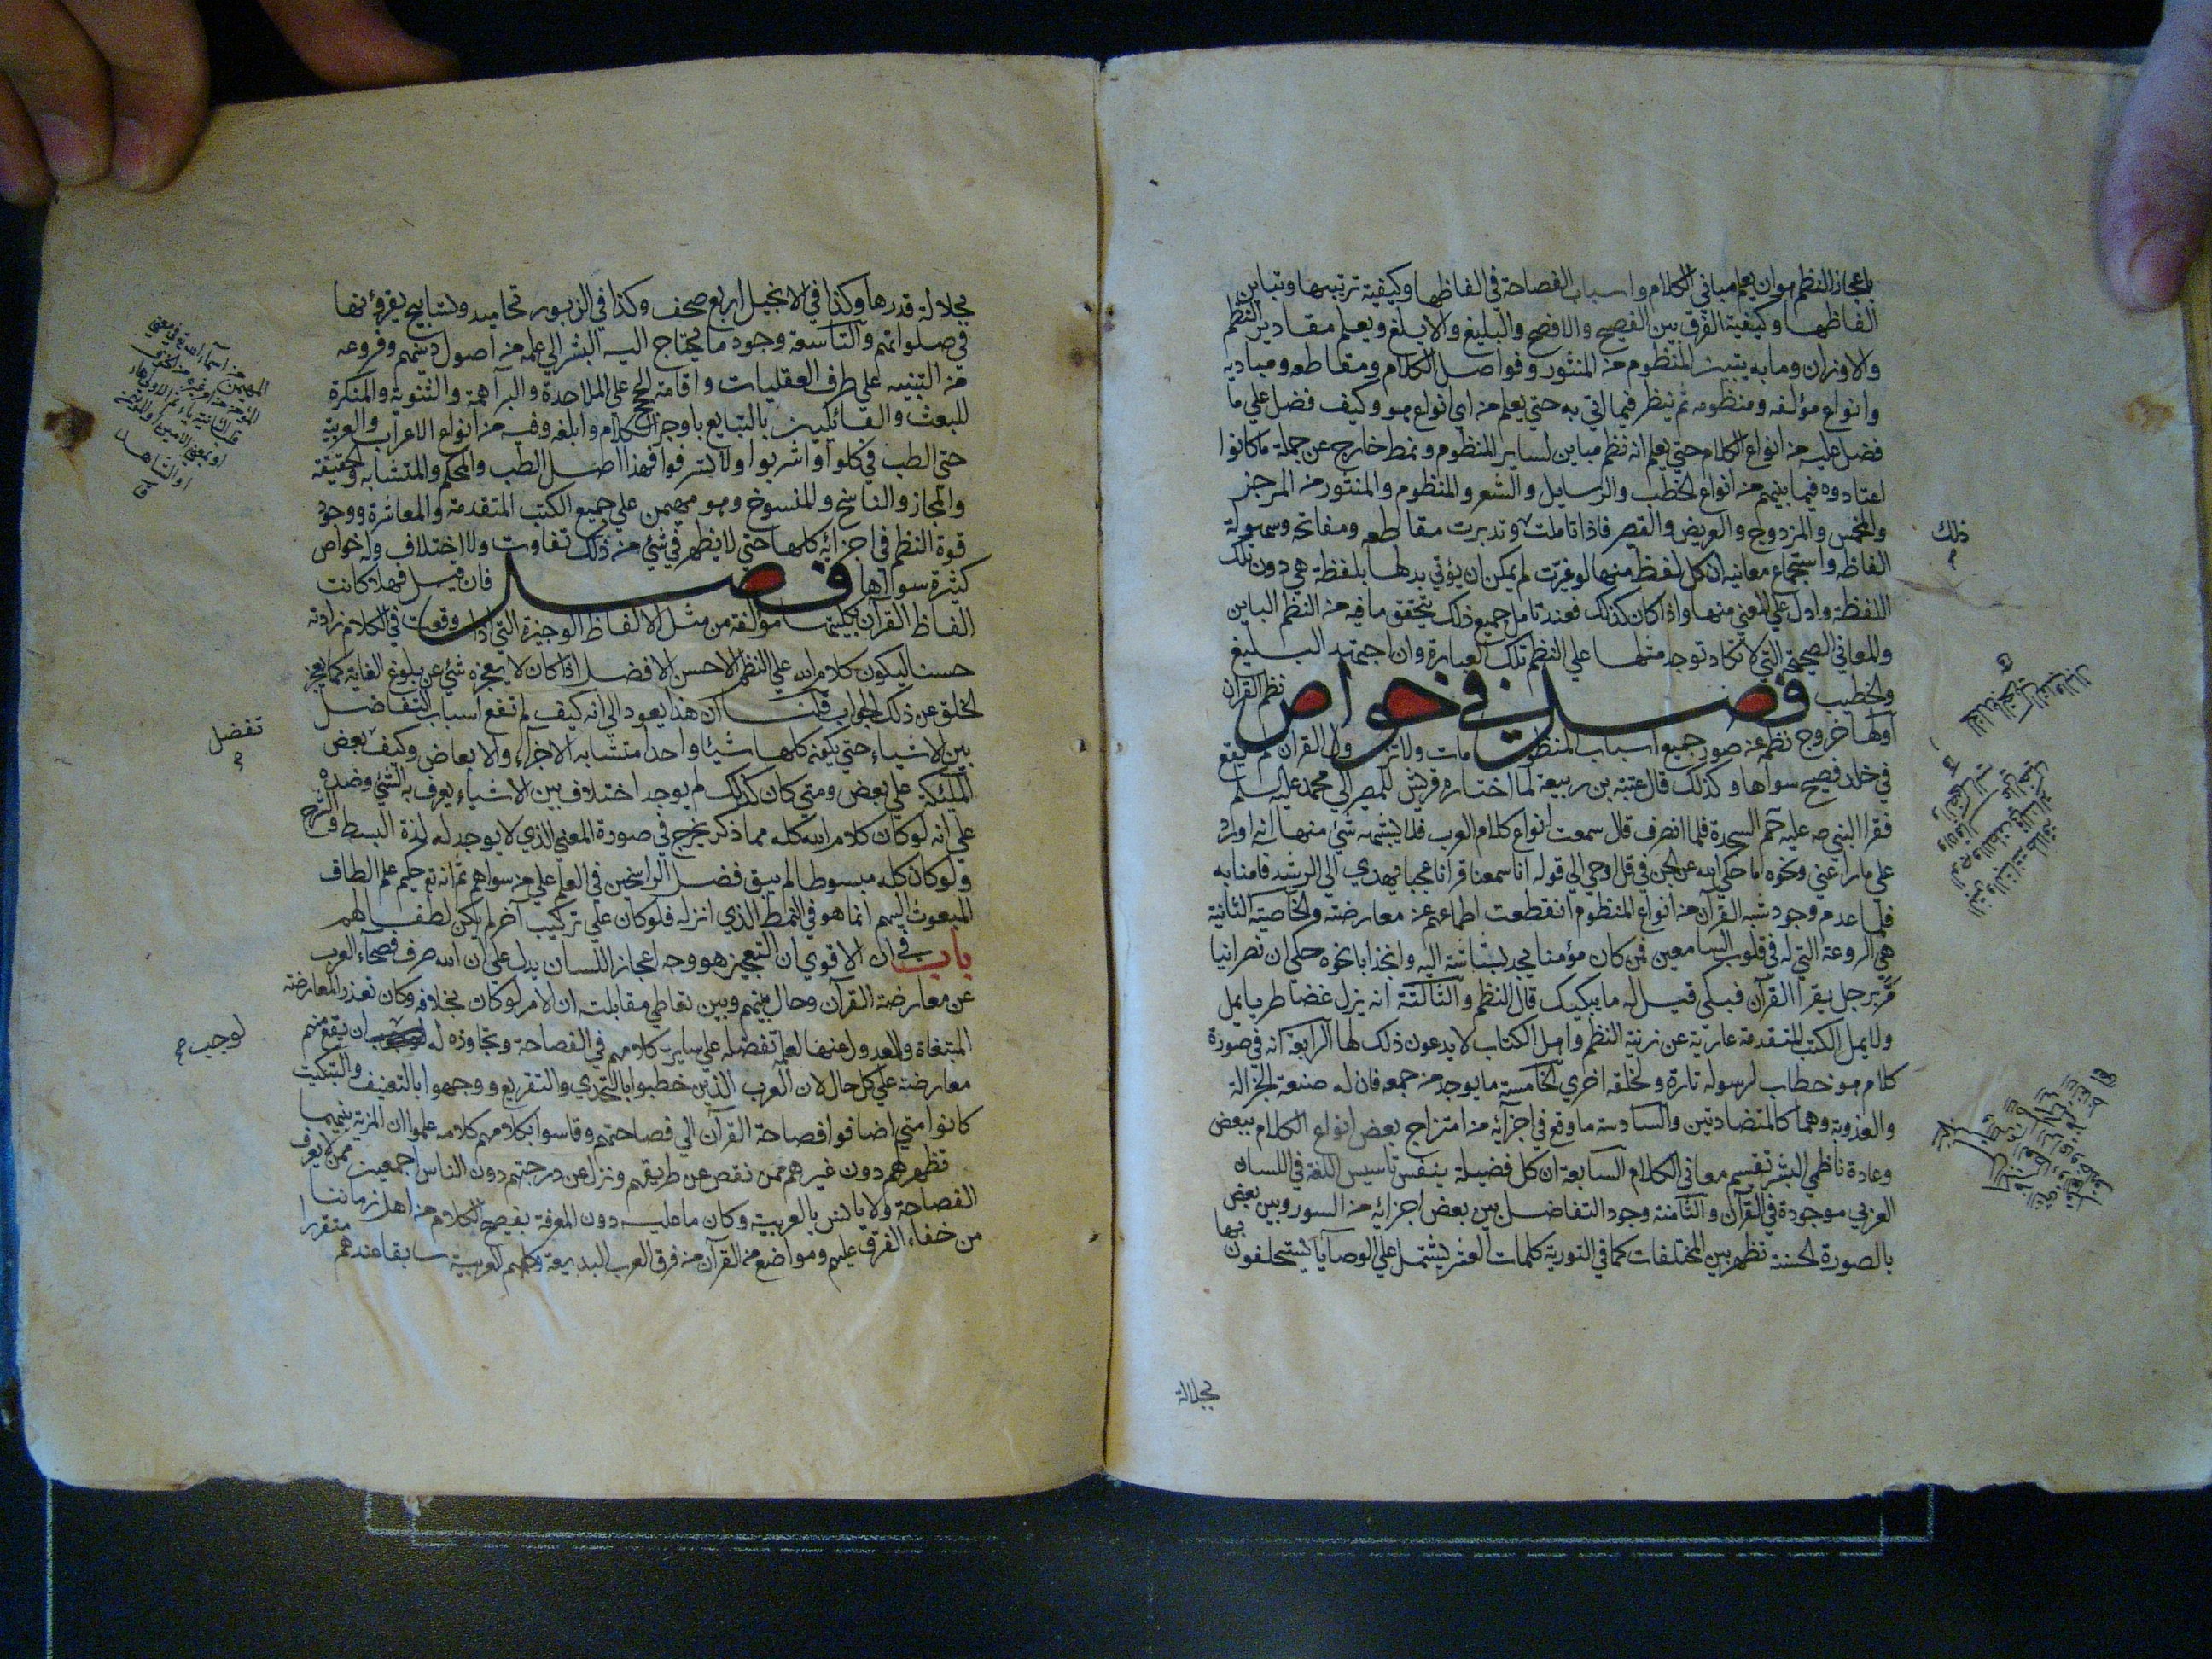 باعجاز النظم هو ان يعلم مباني الكلام واسباب الفصاحة في الفاظها وكيفية ترتيبها وتباين
الفاظها وكيفية الفرق بين الفصيح والافصح والبليغ والابلغ ويعلم مقادير النظم
والاوزان وما به يتبيّن المنظوم من المنثور وفواصل الكلام ومقاطعه ومباديه
وانواع مؤلفه ومنظومه ثم ينظر فيما اتي به حتي يعلم من اي انواع هو وكيف فضل علي ما
فضل عليه من انواع الكلام حتي يعلم انه نظم مباين لساير المنظوم ونمط خارج عن جملة ما كانوا
اعتادوه فيما بينهم من انواع الخطب والرسايل والشعر والمنظوم والمنثور من الرجز
والمخمس والمزدوج والعريض والقصير فاذا تاملت وتدبرت مقاطعه ومفاتحه وسهولة
الفاظه واستجماع معانيه ان كل لفظ منها لو غيرت لم يمكن ان يؤتي بدلها بلفظة هي دون تلك
اللفظة وادل علي المعني منها واذا كان كذلك فعند تامل جميع ذلك يتحقق ما فيه من النظم الباين
والمعاني الصحيحة التي لا تكاد توجد مثلها علي النظم تلك العبارة وان اجتهد البليغ
والخطيب فصل في خواص نظم القرآن
اولها خروج نظمه عن صور جميع اسباب المنظومات ولولا نزول القرآن لم يقع
في خلد فصيح سواها وكذلك قال عتبة بن ربيعة لما اختاره قريش للمصير الي محمد عليه السلم
فقرا النبي صه عليه حم السجدة فلما انصرف قال سمعت انواع كلام العرب فلا يشبهه شيء منها انه اورد
علي ما راعني ونحوه ما حكي الله عن الجن في قل اوحي الي قوله انا سمعنا قرآنا عجبا يهدي الي الرشد فامنا به
فلما عدم وجود شبه القرآن من انواع المنظوم انقطعت اطماعهم عن معارضته والخاصية الثانية
هي الروعة التي له في قلوب السامعين فمن كان مؤمنا يجد بشاشة اليه وانجذابا نحوه حكي ان نصرانيا
مرّ برجل يقرا القرآن فبكي قيل له ما يبكيك قال النظم والثالثة انه يزل غضا طريا لا يمل
ولا يمل الكتب المتقدمة عارية عن زينة النظم واهل الكتاب لا يدعون ذلك لها الرابعة انه في صورة
كلام هو خطاب لرسوله تارة ولخلقه اخري الخامسة ما يوجد من جمعه فان له صنعة الجزالة
والعذوبة وهما كالمتضادتين والسادسة ما وقع في اجزائه من امتزاج بعض انواع الكلام ببعض
وعادة ناظمي البشر تقسيم معاني الكلام السابعة ان كل فضيلة ينفس تاسيس اللغة في اللسان
العربي موجودة في القرآن والثامنة وجود التفاضل بين بعض اجزائه من السور وبين بعض
بالصورة الحسنة تظهر بين المختلفات كما في التورية كلمات العشر يشتمل علي الوصايا يستحلفون بها
ذلك
بجلالة
بجلالة قدرها وكذا في الانجيل اربع صحف وكذا في الزبور تحاميد وتسابيح يقرؤنها
في صلواتهم والتاسعة وجود ما يحتاج اليه البشر الي علمه من اصول دينهم وفروعه
من التنبيه علي طرف العقليات واقامة الحجج علي الملاحدة والبراهمة والثنوية والمنكرة
للبعث والقائلين بالتبايع باوجز الكلام وابلغه وفيه من انواع الاعراب والعربية
حتي الطب في كلوا واشربوا ولا تسرفوا فهذا اصل الطب والمحكم والمتشابه والحقيقة
والمجاز والناسخ والمنسوخ وهو مهيمن علي جميع الكتب المتقدمة والمعاشرة ووجود
قوة النظم في اجزائه كلها حتي لا يظهر في شيء من ذلك تفاوت ولا اختلاف وله خواص
كثيرة سواها فصل فان قيل فهلا كانت
الفاظ القرآن بكليتها مؤلفة من مثل الالفاظ الوجيزة التي اذا وقعت في الكلام زادته
حسنا ليكون كلام الله علي النظم الاحسن الافضل اذا كان لا يعجزه شيء عن بلوغ الغاية كما يعجز
الخلق عن ذلك الجواب قلنا ان هذا يعود الي انه كيف لم تقع اسباب التفاضل
بين الاشياء حتي يكون كلها شيئا واحدا متشابه الاجزاء والابعاض وكيف بعض
الملئكة علي بعض ومتي كان كذلك لم يوجد اختلاف بين الاشياء يعرف به الشيء وضده
علي انه لو كان كلام الله كله مما ذكر يخرج في صورة المعمي الذي لا يوجد له لذة البسط والشرح
ولو كان كله مبسوطا لم يبق فضل الراسخين في العلم علي من سواهم ثم انه تع حكيم علم الطاف
المبعوث اليهم انما هو في النمط الذي انزله فلو كان علي تركيب آخر لم يكن لطفا لهم
باب في ان الاقوي ان التعجيز هو وجه اعجاز اللسان يدل علي ان الله صرف فصحاء العرب
عن معارضة القرآن وحال بينهم وبين تعاطي مقابلته ان الامر لو كان بخلافه وكان تعذر المعارضة
المبتغاة والعدول عنها لعلم تفضله علي ساير كلامهم في الفصاحة وتجاوزه له ان يقع منهم
معارضة علي كل حال لان العرب الذين خطبوا بالتحدي والتقريع ووجهوا بالتعنيف والتبكيت
كانوا متي اضافوا فصاحة القرآن الي فصاحتهم وقاسوا بكلامهم كلامه علموا ان المزية بينهما
تظهر لهم دون غيرهم ممن نقص عن طريقهم ونزل عن درجتهم دون الناس اجمعين ممن لا يعرف
الفصاحة ولا يانس بالعربية وكان ما عليه دون المعرفة بفصيح الكلام من اهل زماننا
من خفاء الفرق عليهم ومواضع من القرآن من فرق العرب البديعة وكلهم العربية سابقا عندهم متقررا
تفضل
لوجب